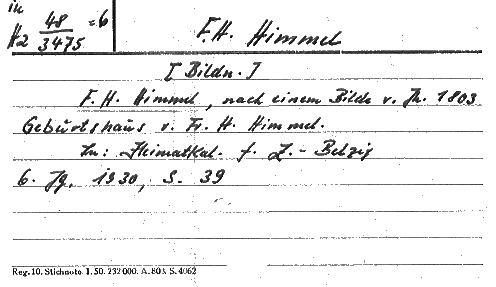 in
H2 48/3475 =6
F.H. Himmel
[Bildn.]
F. H. Himmel, nach einem Bilde v. J. 1803
Geburtshaus v. Fr. H. Himmel.
In: Heimatkal. f. Z.-Belzig
6. Jg, 1930, S. 39
Reg. 10. Stichnote. 1. 50. 232000. A. 803. S. 4062